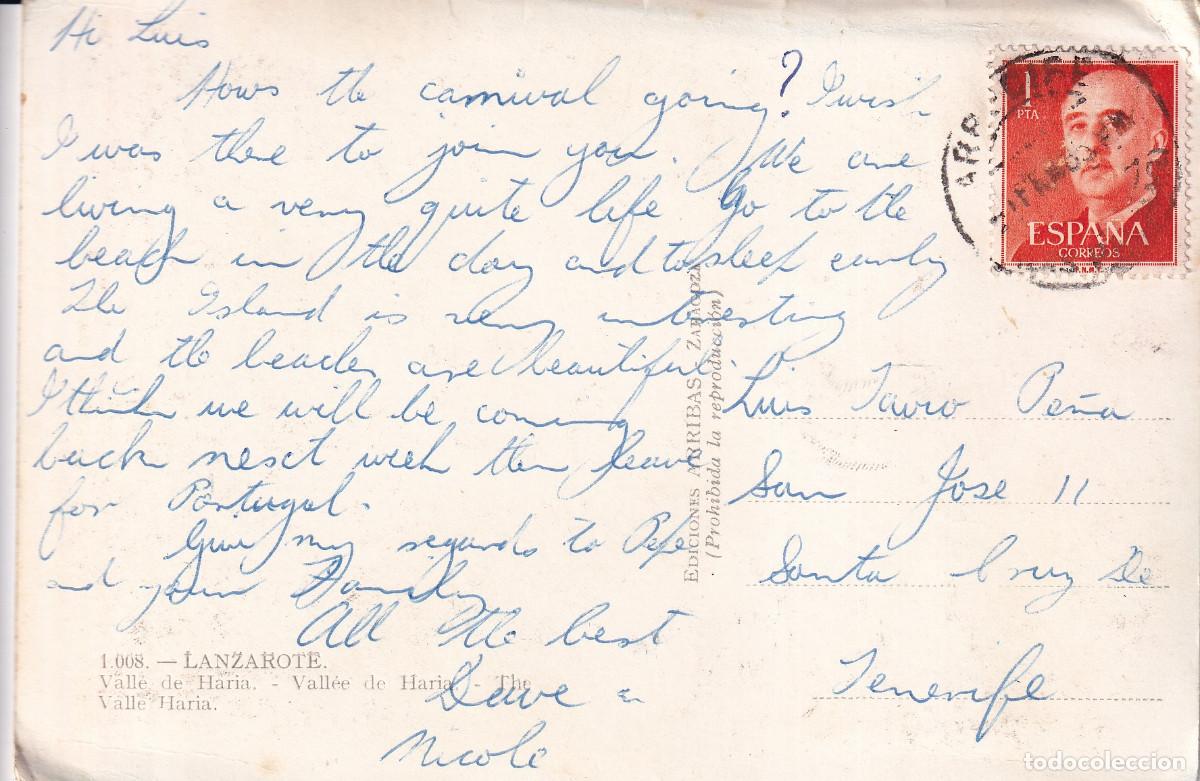 Hi Luis
Hows the carnival going? I wish
I was there to join you. We are
living a very quite life go to the
beach in the day and to sleep early
The Island is very interesting
and the beaches are beautiful.
I think we will be coming
back next week then leave
for Portugal.
Give my regards to Pepe
and your Family
All the best
Dave =
Nicole
1.008. — LANZAROTE.
Valle de Haria. - Vallée de Haria. - The
Valle Haria.
EDICIONES ARRIBAS ZARAGOZA
(Prohibida la reproducción)
1
PTA
ESPAÑA
CORREOS
F.N.M.T.
Luis Tavio Peña
San Jose 11
Santa Cruz De
Tenerife
todocoleccion